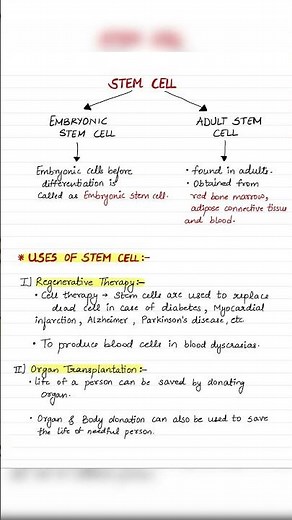 STEM CELL
EMBRYONIC
STEM CELL
ADULT STEM
CELL
Embryonic cells before
differentiation is
called as Embryonic stem cell.
• found in adults.
• Obtained from
red bone marrow,
adipose connective tissue
and blood.
* USES OF STEM CELL:-
I] Regenerative Therapy:-
• Cell therapy → Stem cells are used to replace
dead cell in case of diabetes, Myocardial
infarction, Alzheimer, Parkinson's disease, etc
• To produce blood cells in blood dyscrasias.
II] Organ Transplantation:-
• Life of a person can be saved by donating
organ.
• Organ & Body donation can also be used to save
the life of needful person.